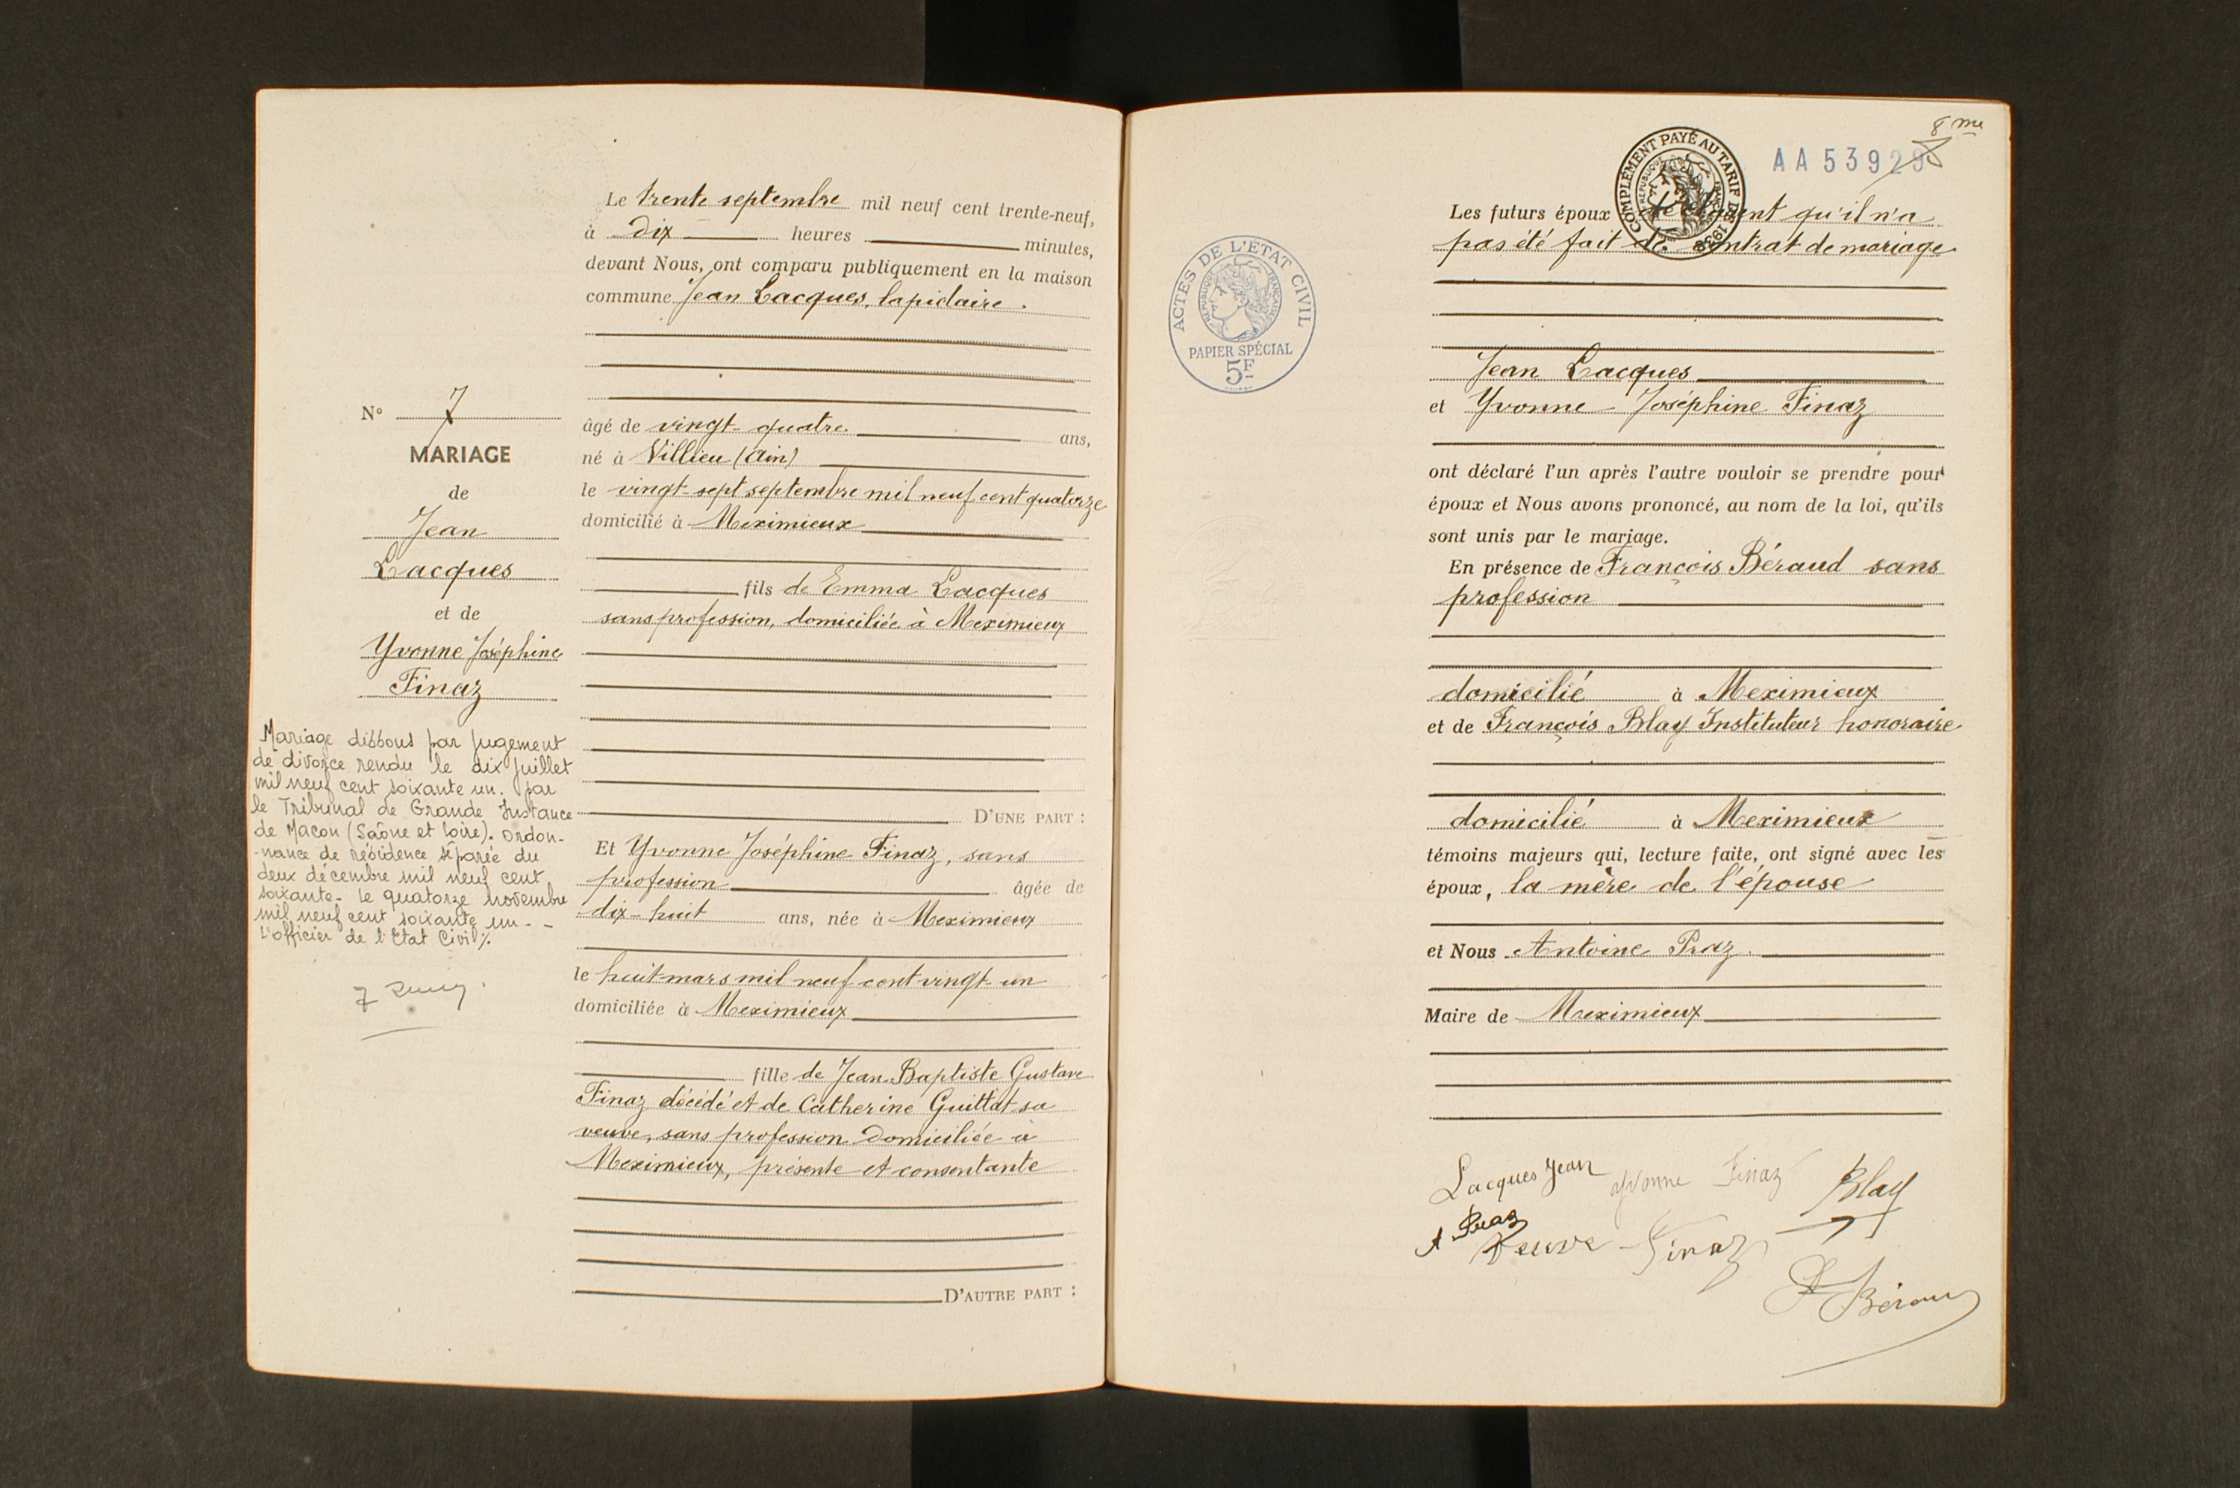 N° 7
MARIAGE
de
Jean
Lacques
et de
Yvonne Joséphine
Finaz
Mariage dissous par jugement
de divorce rendu le dix juillet
mil neuf cent soixante un. par
le Tribunal de Grande Instance
de Macon (Saône et Loire). Ordon-
-nance de résidence séparée du
deux décembre mil neuf cent
soixante. Le quatorze novembre
mil neuf cent soixante un - -
L'officier de l'Etat Civil ./.
Le trente septembre mil neuf cent trente-neuf,
à dix heures minutes,
devant Nous, ont comparu publiquement en la maison
commune Jean Lacques, lapidaire.
âgé de vingt-quatre ans,
né à Villieu (Ain)
le vingt-sept septembre mil neuf cent quatorze
domicilié à Meximieux
fils de Emma Lacques
sans profession, domiciliée à Meximieux
D'UNE PART :
Et Yvonne Joséphine Finaz, sans
profession âgée de
dix-huit ans, née à Meximieux
le huit mars mil neuf cent vingt-un
domiciliée à Meximieux
fille de Jean-Baptiste Gustave
Finaz décédé et de Catherine Guittat sa
veuve, sans profession domiciliée à
Meximieux, présente et consentante
D'AUTRE PART :
8me
AA 53929
COMPLÉMENT PAYÉ AU TARIF DE 1938
RÉPUBLIQUE FRANÇAISE
ACTES DE L'ETAT CIVIL
RÉPUBLIQUE FRANÇAISE
PAPIER SPÉCIAL
5F
Les futurs époux déclarent qu'il n'a
pas été fait de contrat de mariage
Jean Lacques
et Yvonne Joséphine Finaz
ont déclaré l'un après l'autre vouloir se prendre pour
époux et Nous avons prononcé, au nom de la loi, qu'ils
sont unis par le mariage.
En présence de François Béraud sans
profession
domicilié à Meximieux
et de François Blay Instituteur honoraire
domicilié à Meximieux
témoins majeurs qui, lecture faite, ont signé avec les
époux, la mère de l'épouse
et Nous Antoine Praz.
Maire de Meximieux
Lacques Jean Yvonne Finaz Blay
A Praz
Veuve Finaz